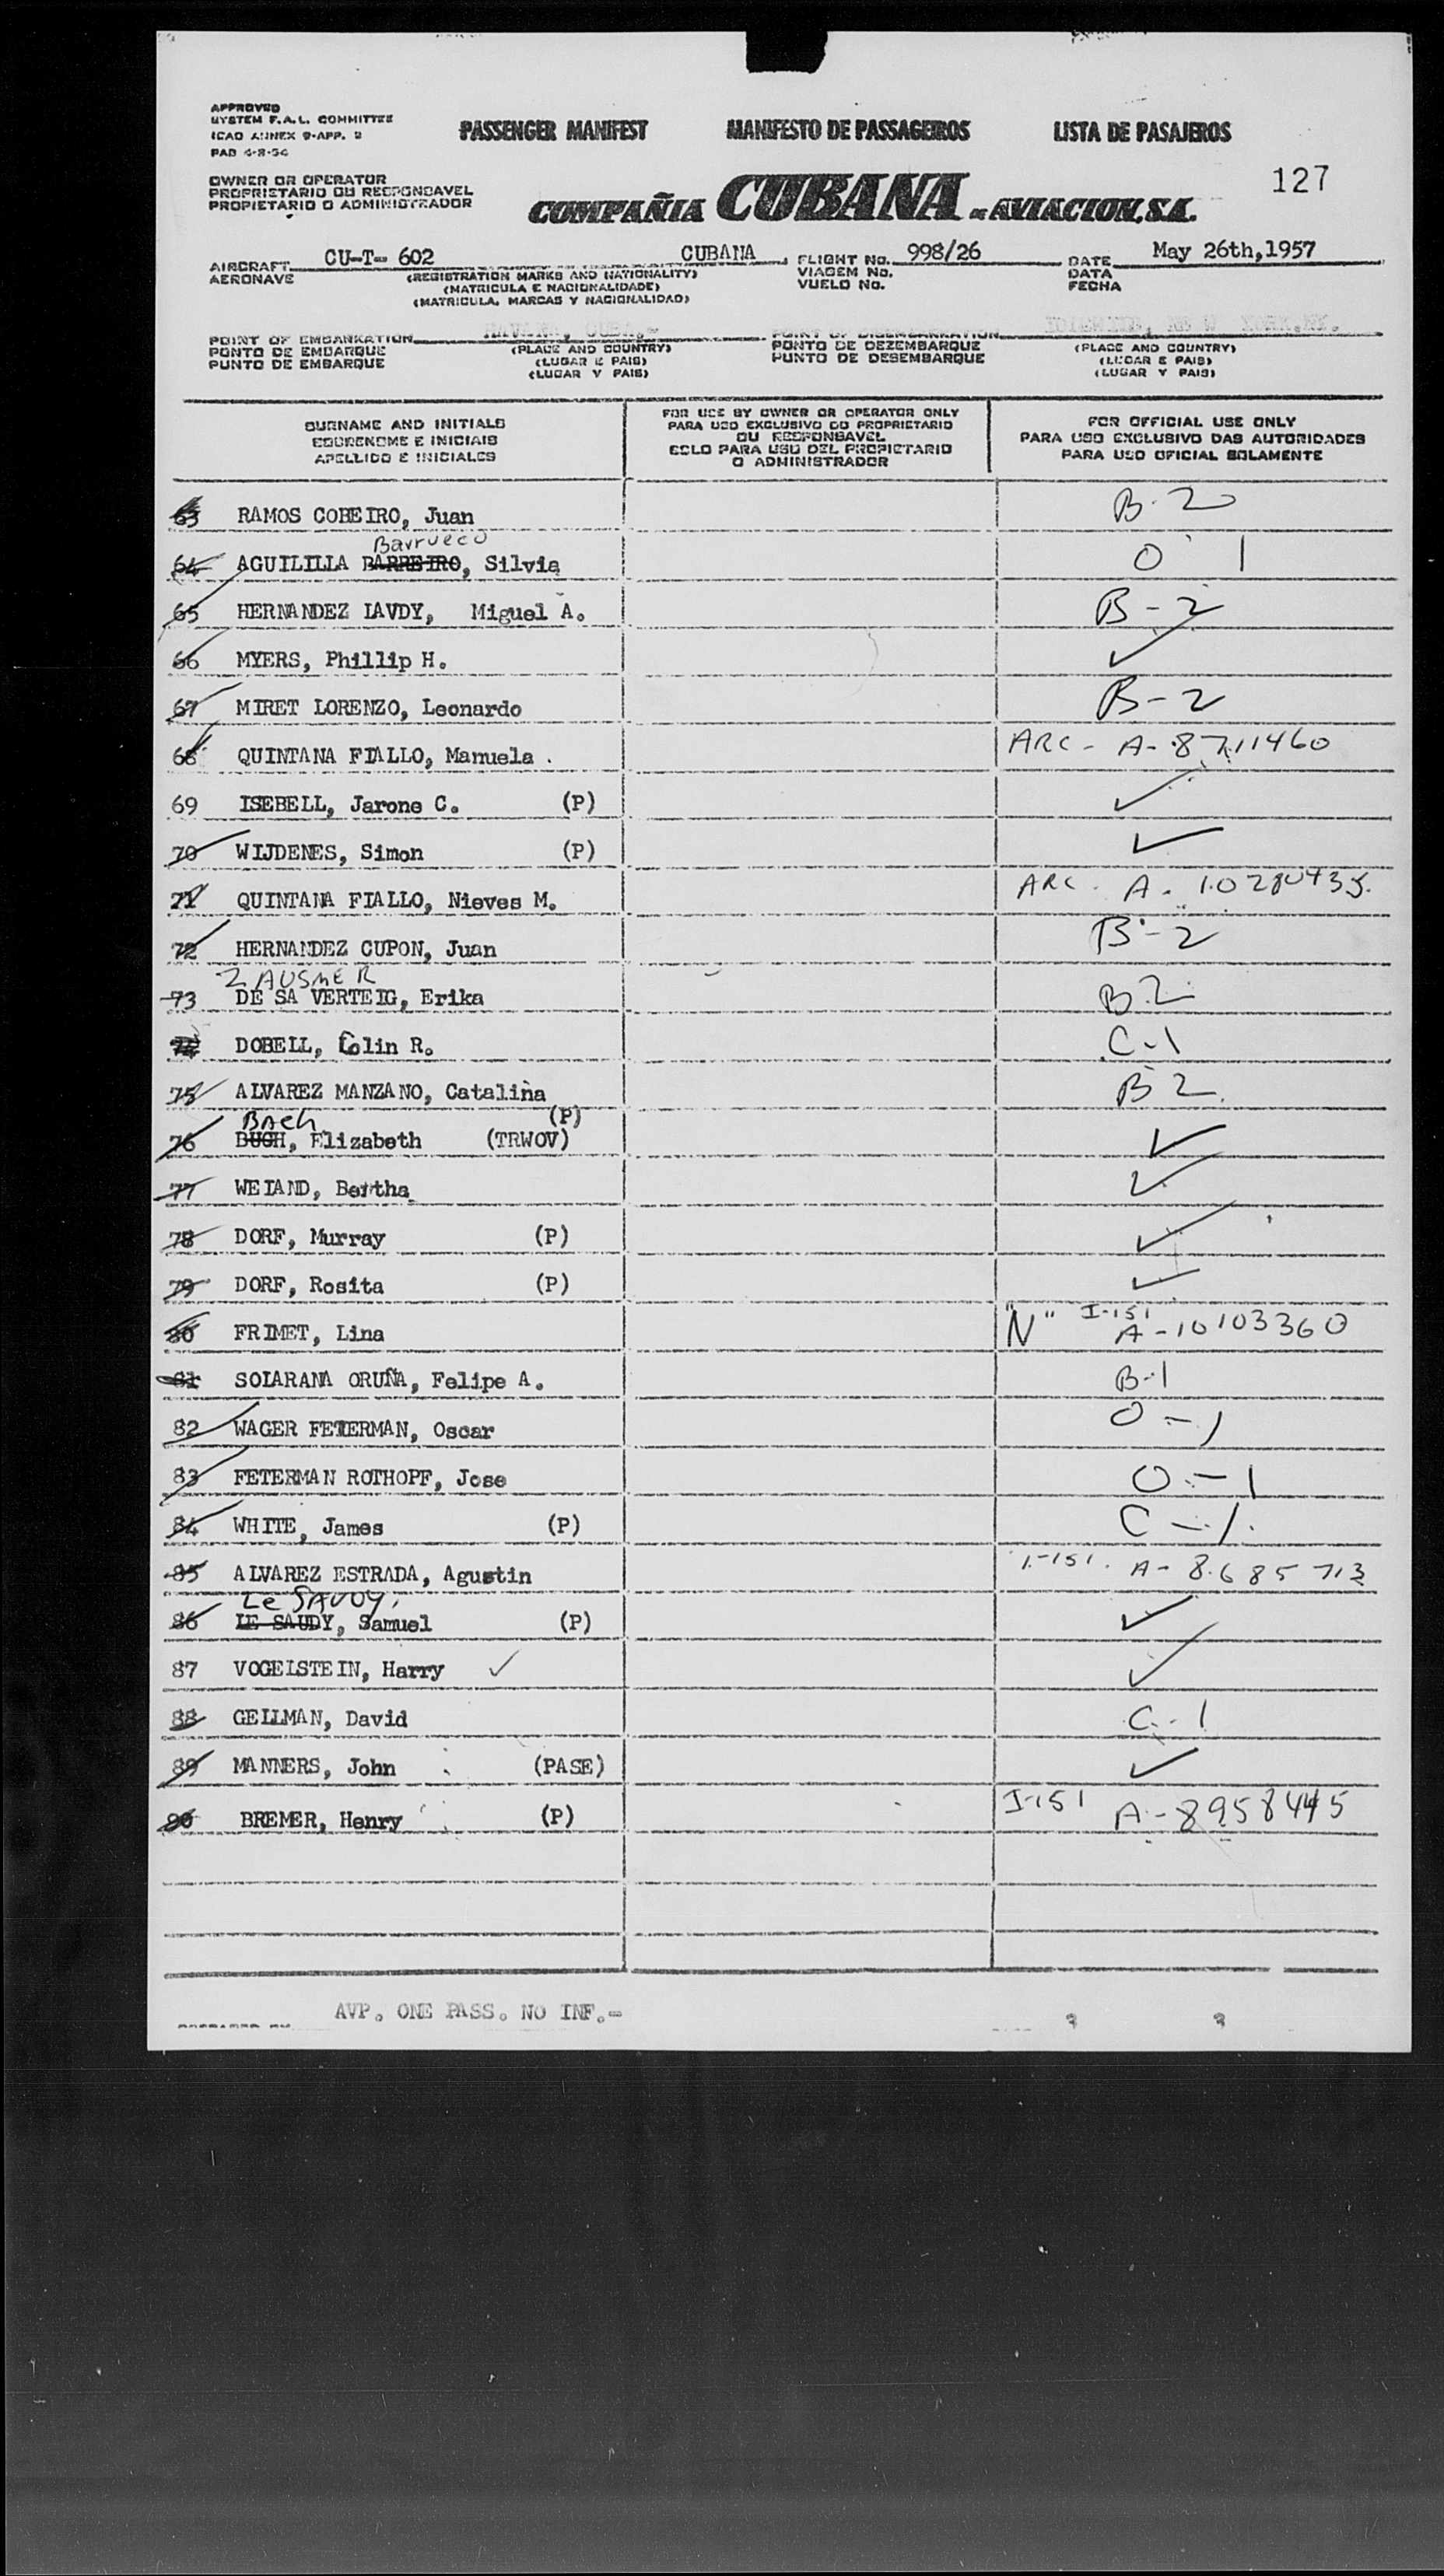 APPROVED
SYSTEM F.A.L. COMMITTEE
ICAO ANNEX 9-APP. 2
PAB 4-8-54
PASSENGER MANIFEST MANIFESTO DE PASSAGEIROS LISTA DE PASAJEROS
127
OWNER OR OPERATOR
PROPRIETARIO OU RESPONSAVEL
PROPIETARIO O ADMINISTRADOR
COMPAÑIA CUBANA DE AVIACION, S.A.
AIRCRAFT CU-T- 602 CUBANA FLIGHT No. 998/26 DATE May 26th,1957
AERONAVE (REGISTRATION MARKS AND NATIONALITY) VIAGEM No. DATA
(MATRICULA E NACIONALIDADE) VUELO No. FECHA
(MATRICULA, MARCAS Y NACIONALIDAD)
POINT OF EMBARKATION HAVANA, CUBA.- POINT OF DISEMBARKATION
PONTO DE EMBARQUE (PLACE AND COUNTRY) PONTO DE DEZEMBARQUE (PLACE AND COUNTRY)
PUNTO DE EMBARQUE (LUGAR E PAIS) PUNTO DE DESEMBARQUE (LUGAR E PAIS)
(LUGAR Y PAIS) (LUGAR Y PAIS)
SURNAME AND INITIALS
SOBRENOME E INICIAIS
APELLIDO E INICIALES
FOR USE BY OWNER OR OPERATOR ONLY
PARA USO EXCLUSIVO DO PROPRIETARIO
OU RESPONSAVEL
SOLO PARA USO DEL PROPIETARIO
O ADMINISTRADOR
FOR OFFICIAL USE ONLY
PARA USO EXCLUSIVO DAS AUTORIDADES
PARA USO OFICIAL SOLAMENTE
63 RAMOS COBEIRO, Juan B-2
Barrueco
64 AGUILILLA BARREIRO, Silvia O 1
65 HERNANDEZ LAVDY, Miguel A. B-2
66 MYERS, Phillip H. ✓
67 MIRET LORENZO, Leonardo B-2
68 QUINTANA FIALLO, Manuela . ARC- A-8711460
69 ISEBELL, Jarone C. (P) ✓
70 WIJDENES, Simon (P) ✓
71 QUINTANA FIALLO, Nieves M. ARC. A-10280435.
72 HERNANDEZ CUPON, Juan B-2
ZAUSMER
73 DE SA VERTEIG, Erika B2
74 DOBELL, Colin R. C-1
75 ALVAREZ MANZANO, Catalina B2
Bach (P)
76 BUGH, Elizabeth (TRWOV) ✓
77 WEIAND, Bertha ✓
78 DORF, Murray (P) ✓
79 DORF, Rosita (P) ✓
80 FRIMET, Lina "N" I-151 A-10103360
81 SOLARANA ORUÑA, Felipe A. B-1
82 WAGER FETERMAN, Oscar O-1
83 FETERMAN ROTHOPF, Jose O-1
84 WHITE, James (P) C-1
85 ALVAREZ ESTRADA, Agustin I-151. A-8685713
Le SAVOY
86 LE SAUDY, Samuel (P) ✓
87 VOGELSTEIN, Harry ✓ ✓
88 GELLMAN, David C-1
89 MANNERS, John (PASE) ✓
90 BREMER, Henry (P) I-151 A-8958445
AVP. ONE PASS. NO INF.-